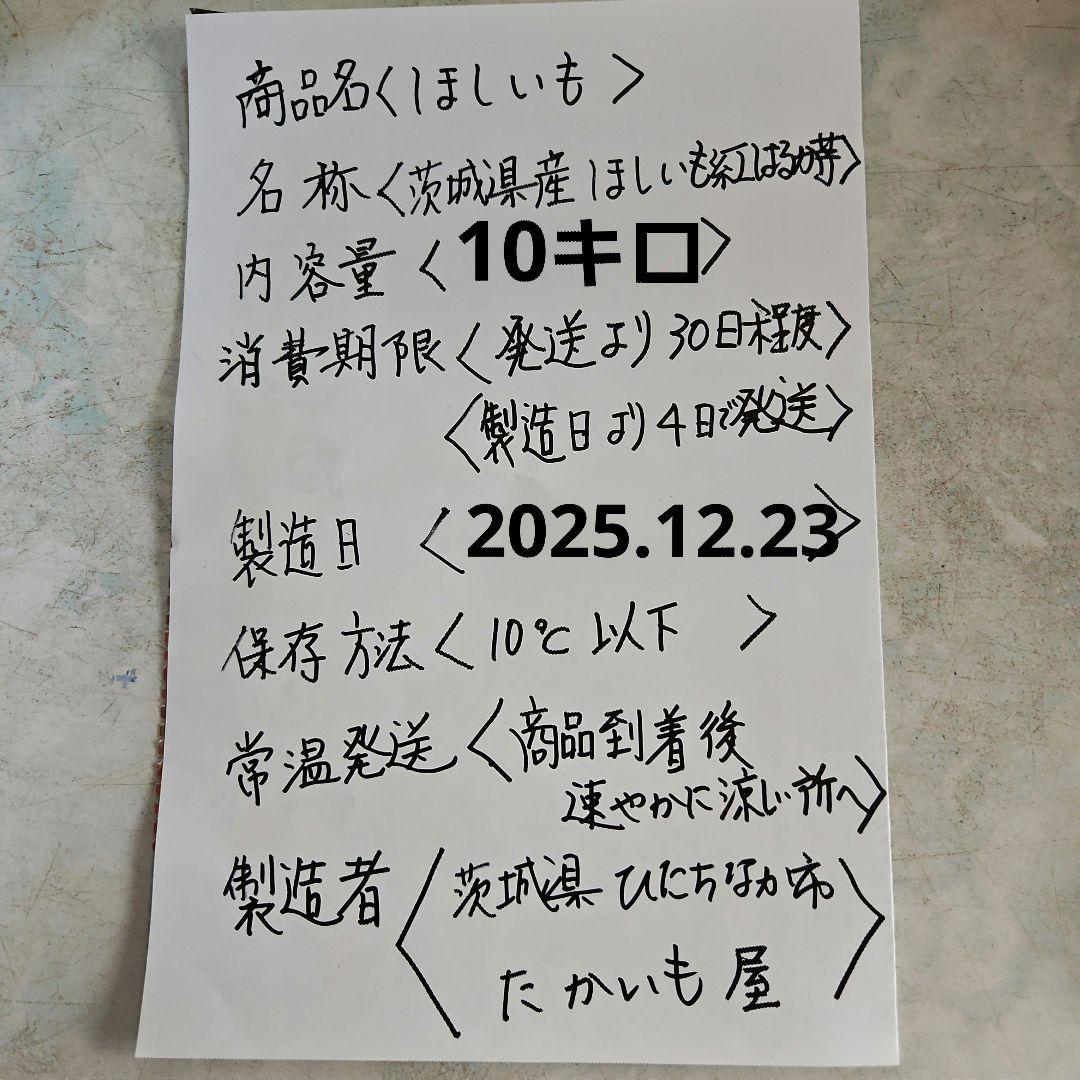 商品名〈ほしいも〉
名称〈茨城県産ほしいも紅はるか芋〉
内容量〈10キロ〉
消費期限〈発送より30日程度〉
〈製造日より4日で発送〉
製造日〈2025.12.23〉
保存方法〈10℃以下〉
常温発送〈商品到着後
速やかに涼しい所へ〉
製造者〈茨城県ひたちなか市
たかいも屋〉